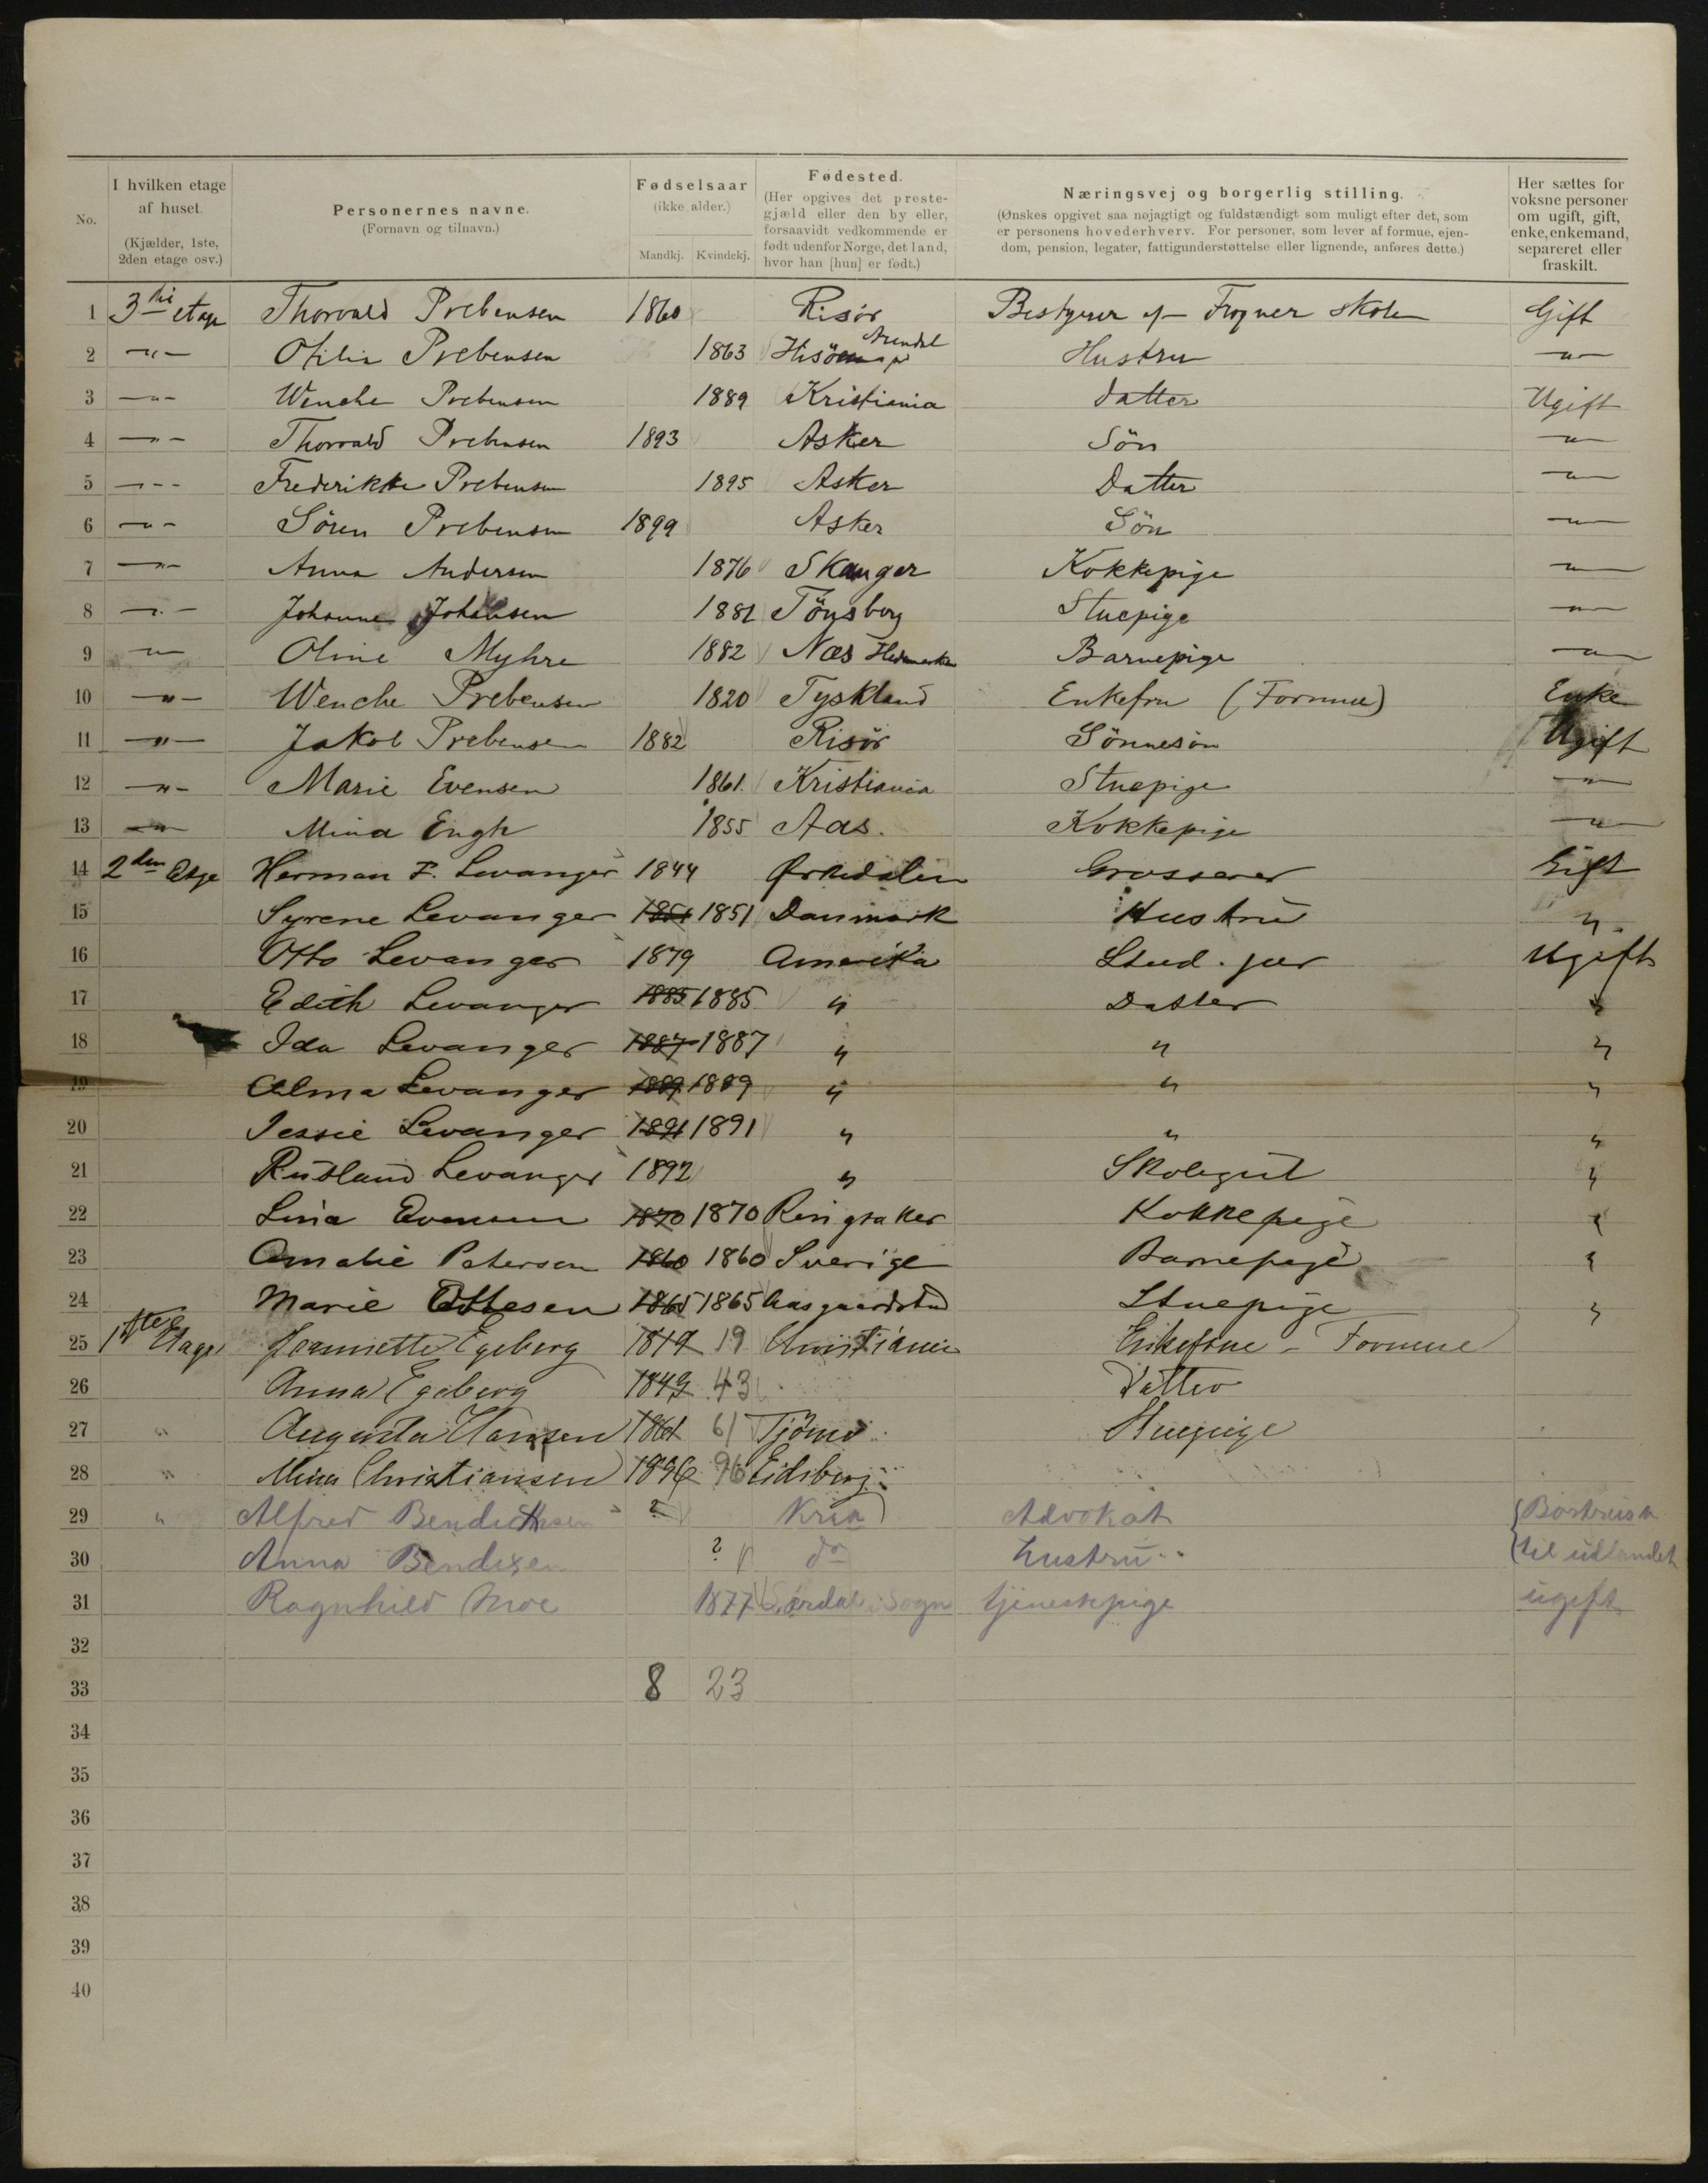 No. I hvilken etage af huset. (Kjælder, 1ste, 2den etage osv.) Personernes navne. (Fornavn og tilnavn.) Fødselsaar (ikke alder.) Mandkj. Kvindekj. Fødested. (Her opgives det prestegjæld eller den by eller, forsaavidt vedkommende er født udenfor Norge, det land, hvor han [hun] er født.) Næringsvej og borgerlig stilling. (Ønskes opgivet saa nøjagtigt og fuldstændigt som muligt efter det, som er personens hovederhverv. For personer, som lever af formue, ejendom, pension, legater, fattigunderstøttelse eller lignende, anføres dette.) Her sættes for voksne personer om ugift, gift, enke, enkemand, separeret eller fraskilt.
1 3die etage Thorvald Prebensen 1860 Risör Bestyrer af Frogner skole Gift
2 -"- Otilie Prebensen 1863 Hisöen Arendal Hustru -"-
3 -"- Wenche Prebensen 1889 Kristiania Datter Ugift
4 -"- Thorvald Prebensen 1893 Asker Sön -"-
5 -"- Frederikke Prebensen 1895 Asker Datter -"-
6 -"- Sören Prebensen 1899 Asker Sön -"-
7 -"- Anna Andersen 1876 Skauger Kokkepige -"-
8 -"- Johanne Johansen 1881 Tönsberg Stuepige -"-
9 -"- Oline Myhre 1882 Næs Hedemarken Barnepige -"-
10 -"- Wenche Prebensen 1820 Tyskland Enkefru (Formue) Enke
11 -"- Jakob Prebensen 1882 Risör Sönnesön Ugift
12 -"- Marie Evensen 1861. Kristiania Stuepige -"-
13 -"- Mina Engh 1855 Aas. Kokkepige -"-
14 2den Etge Herman F. Levanger 1844 Ørkedalen Grosserer Gift
15 Syrene Levanger 1851 1851 Danmark Hustru "
16 Otto Levanger 1879 Amerika Stud. jur Ugift
17 Edith Levanger 1885 1885 " Datter "
18 Ida Levanger 1887 1887 " " "
19 Alma Levanger 1889 1889 " " "
20 Jessie Levanger 1891 1891 " " "
21 Rutland Levanger 1892 " Skolegut "
22 Lina Evensen 1870 1870 Ringsaker Kokkepige "
23 Amalie Peterson 1860 1860 Sverige Barnepige "
24 Marie Ottesen 1865 1865 Aasgaardstrand Stuepige "
25 1ste Etage Jeannette Egeberg 1819 19 Christiania Enkefrue - Formue
26 Anna Egeberg 1843 43 Datter
27 " Augusta Hansen 1861 61 Tjömö Stuepige
28 " Mina Christiansen 1896 96 Eidsberg
29 " Alfred Bendichsen ? Kria Advokat Bortreist
30 Anna Bendixen ? do hustru til udlandet
31 Ragnhild Moe 1877 Sogn tjenestepige ugift
32
33 8 23
34
35
36
37
38
39
40